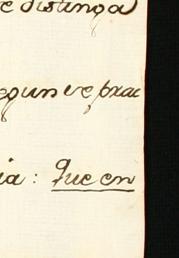 e distinga
egun se prac
ia: Que en